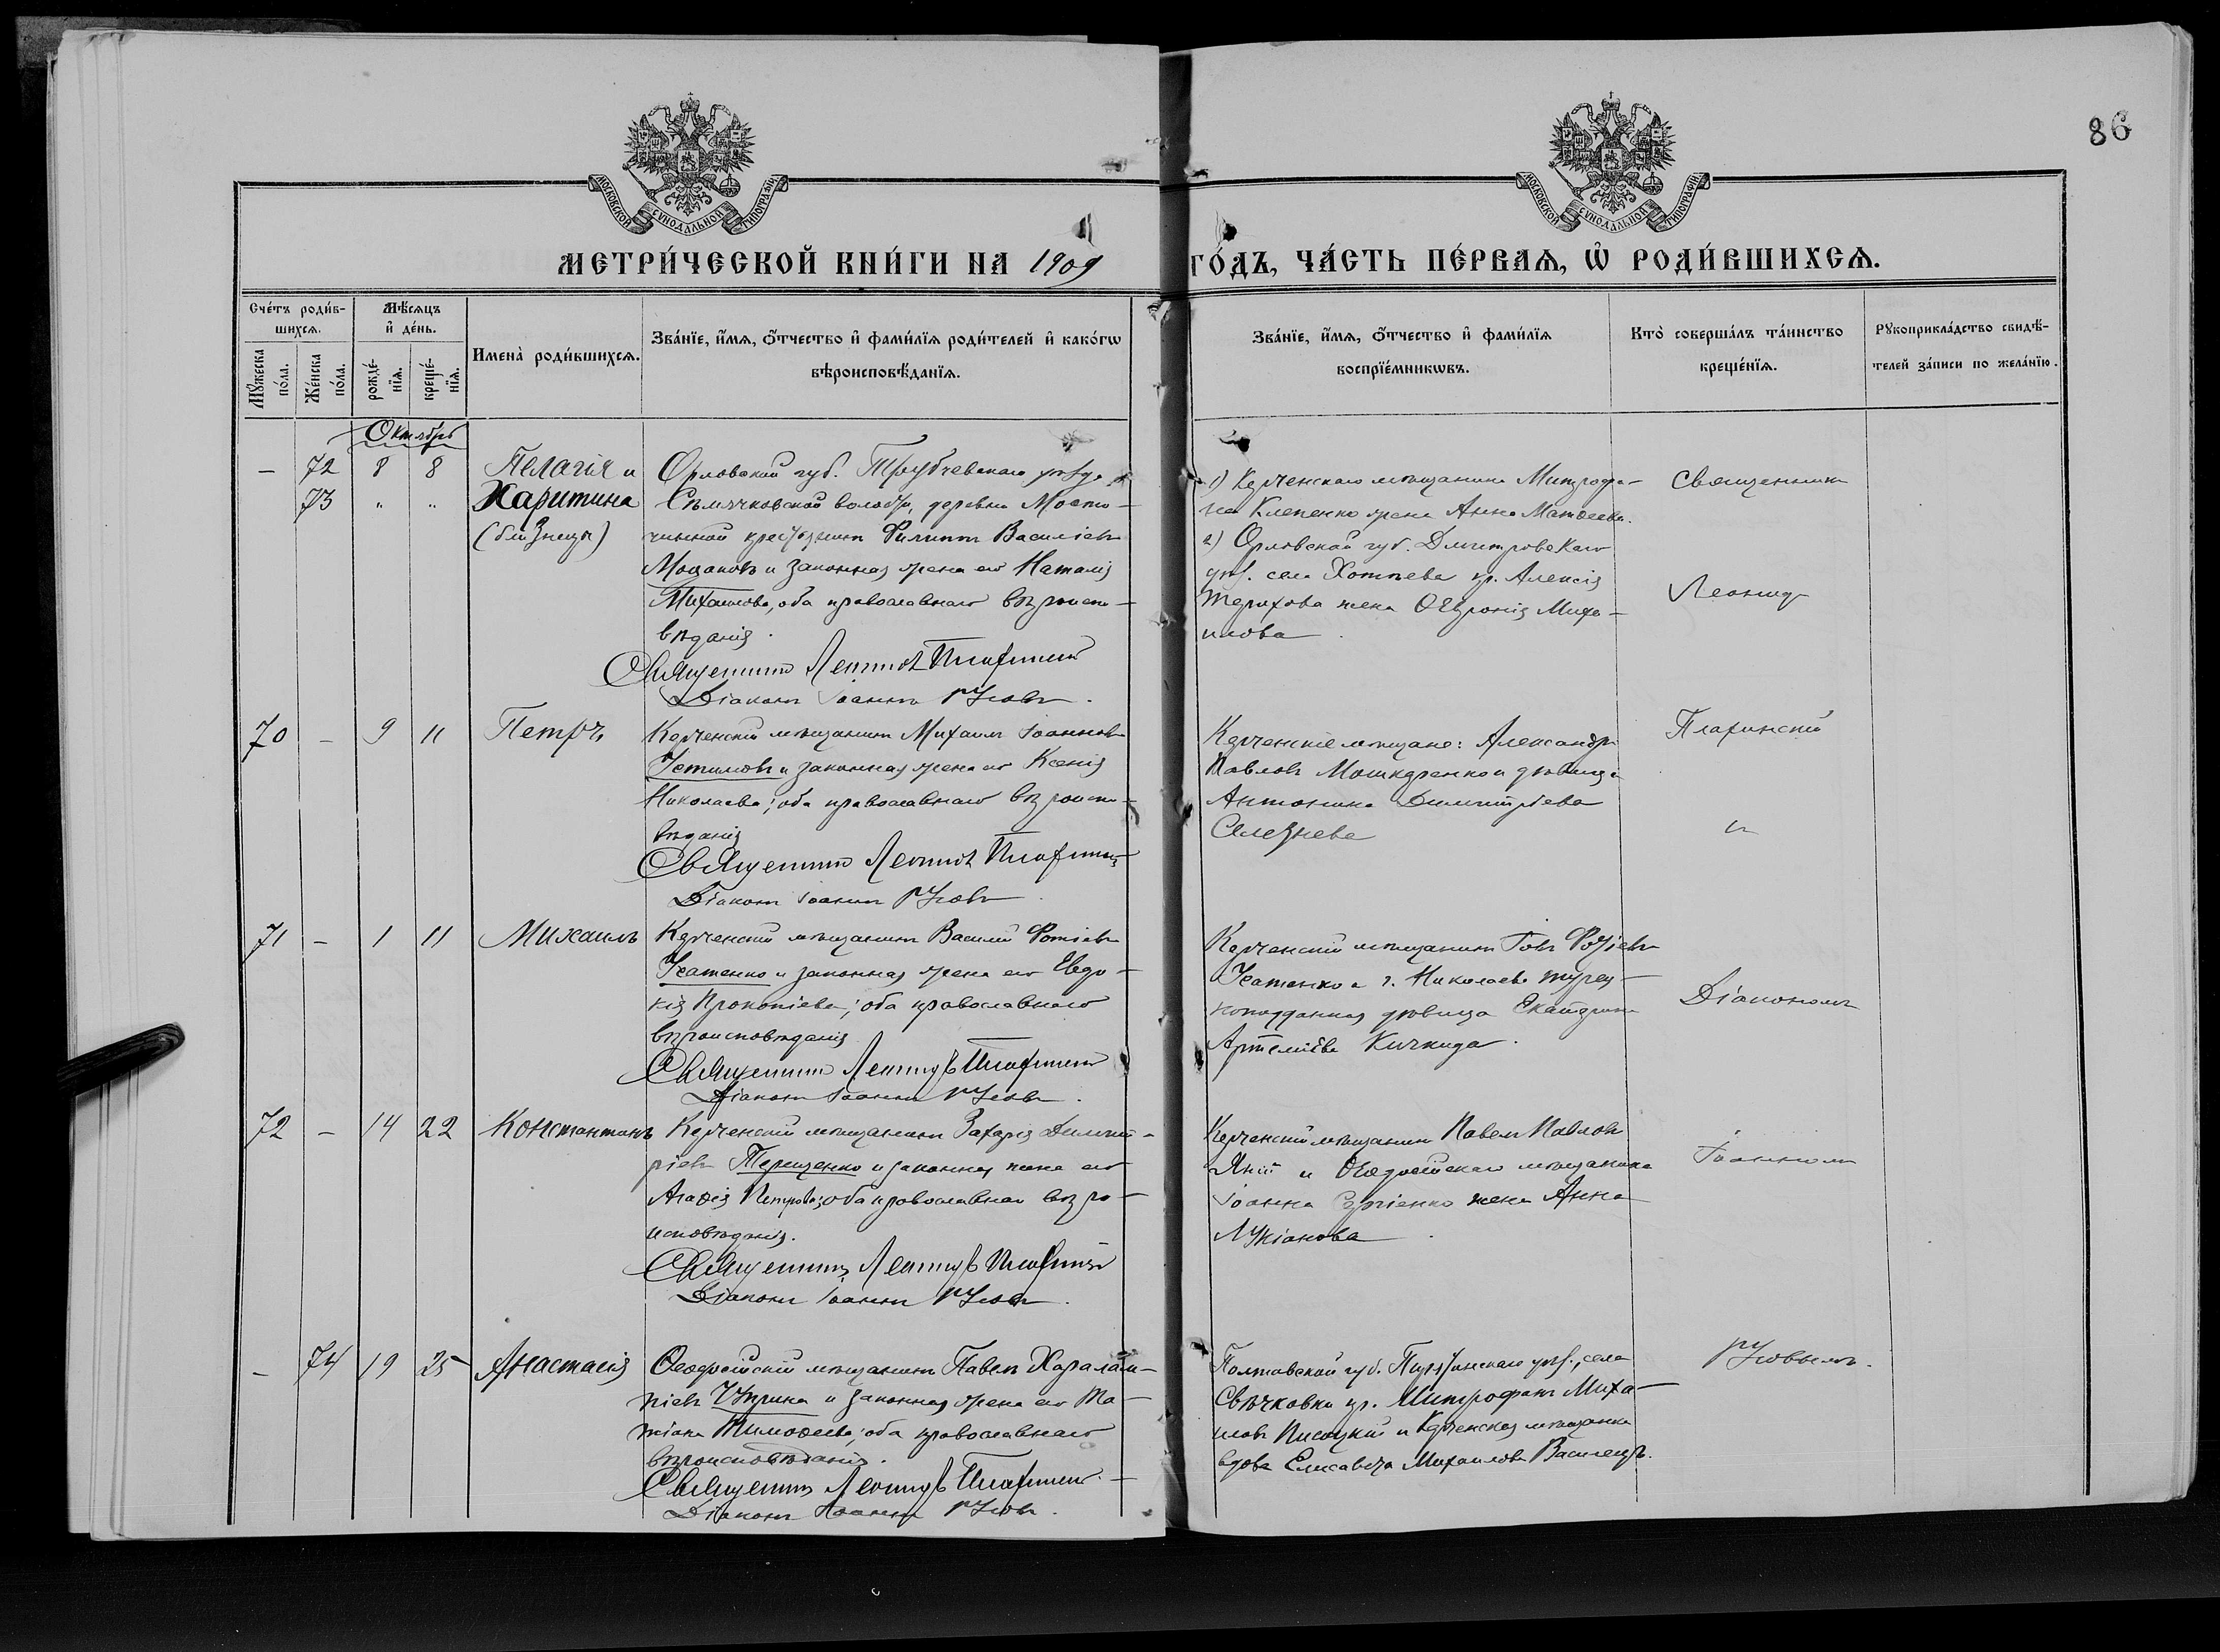 86
МОСКОВСКОЙ СѴНОДАЛЬНОЙ ТИПОГРАФІИ
МОСКОВСКОЙ СѴНОДАЛЬНОЙ ТИПОГРАФІИ
МЕТРИ́ЧЕСКОЙ КНИ́ГИ НА 1909 ГО́ДЪ, ЧА́СТЬ ПЕ́РВАЯ, Ѡ РОДИ́ВШИХСѦ.
Сче́тъ роди́в-
шихсѧ.
Мꙋ́жеска по́ла.
Же́нска по́ла.
Мѣ́сяцъ
и҆ де́нь.
рожде́-нїѧ.
креще́-нїѧ.
Имена̀ роди́вшихсѧ.
Зва́нїе, и҆́мѧ, ѻ҆́тчество и҆ фами́лїѧ роди́телей и҆ како́гѡ
вѣроисповѣ́данїѧ.
Зва́нїе, и҆́мѧ, ѻ҆́тчество и҆ фами́лїѧ
воспрїе́мникѡвъ.
Кто̀ соверша́лъ та́инство
креще́нїѧ.
Рꙋкоприкла́дство свидѣ́-
телей за́писи по жела́нїю.
Октябрь
— 72 8 8 Пелагія и
73 " " Харитина
(близнецы)
Орловской губ. Трубчевскаго уѣзда
Сѣмячковской волости, деревни Мости-
чинной крестьянинъ Филиппъ Василіевъ
Моцаковъ и законная жена его Наталія
Михаилова, оба православнаго вѣроиспо-
вѣданія.
Священникъ Леонидъ Плафинскій
Діаконъ Іоаннъ Усовъ.
1) Керченскаго мѣщанина Митрофа-
на Клепенко жена Анна Матѳеева.
2) Орловской губ. Дмитровскаго
уѣз. села Хотѣева кр. Алексія
Терихова жена Ѳевронія Миха-
илова.
Священникъ
Леонидъ
70 — 9 11 Петръ
Керченскій мѣщанинъ Михаилъ Іоанновъ
Устимовъ и законная жена его Ксенія
Николаева; оба православнаго вѣроиспо-
вѣданія
Священникъ Леонидъ Плафинскій
Діаконъ Іоаннъ Усовъ.
Керченскіе мѣщане: Александръ
Павловъ Мошкаренко и дѣвица
Антонина Димитріева
Селезнева
Плафинскій
и
71 — 1 11 Михаилъ
Керченскій мѣщанинъ Василій Фотіевъ
Усатенко и законная жена его Евдо-
кія Прокопіева; оба православнаго
вѣроисповѣданія
Священникъ Леонидъ Плафинскій
Діаконъ Іоаннъ Усовъ.
Керченскій мѣщанинъ Іовъ Фотіевъ
Усатенко и г. Николаева турец-
коподданная дѣвица Екатерина
Артеміева Кичкида.
Діакономъ
72 — 14 22 Константинъ
Керченскій мѣщанинъ Захарія Димит-
ріевъ Терещенко и законная жена его
Агаѳія Петрова; оба православнаго вѣро-
исповѣданія.
Священникъ Леонидъ Плафинскій
Діаконъ Іоаннъ Усовъ.
Керченскій мѣщанинъ Павелъ Павловъ
и Ѳеодосійскаго мѣщанина
Іоанна Сергіенко жена Анна
Лукіанова.
Іоанномъ
— 74 19 25 Анастасія
Ѳеодосійскій мѣщанинъ Павелъ Харалам-
піевъ Чуприна и законная жена его Та-
тіана Тимоѳеева; оба православнаго
вѣроисповѣданія.
Священникъ Леонидъ Плафинскій
Діаконъ Іоаннъ Усовъ.
Полтавской губ. Пирятинскаго уѣз., села
Свѣчковки кр. Митрофанъ Миха-
иловъ Писецкій и Керченская мѣщанка
вдова Елисавета Михаилова Василецъ.
Усовымъ.